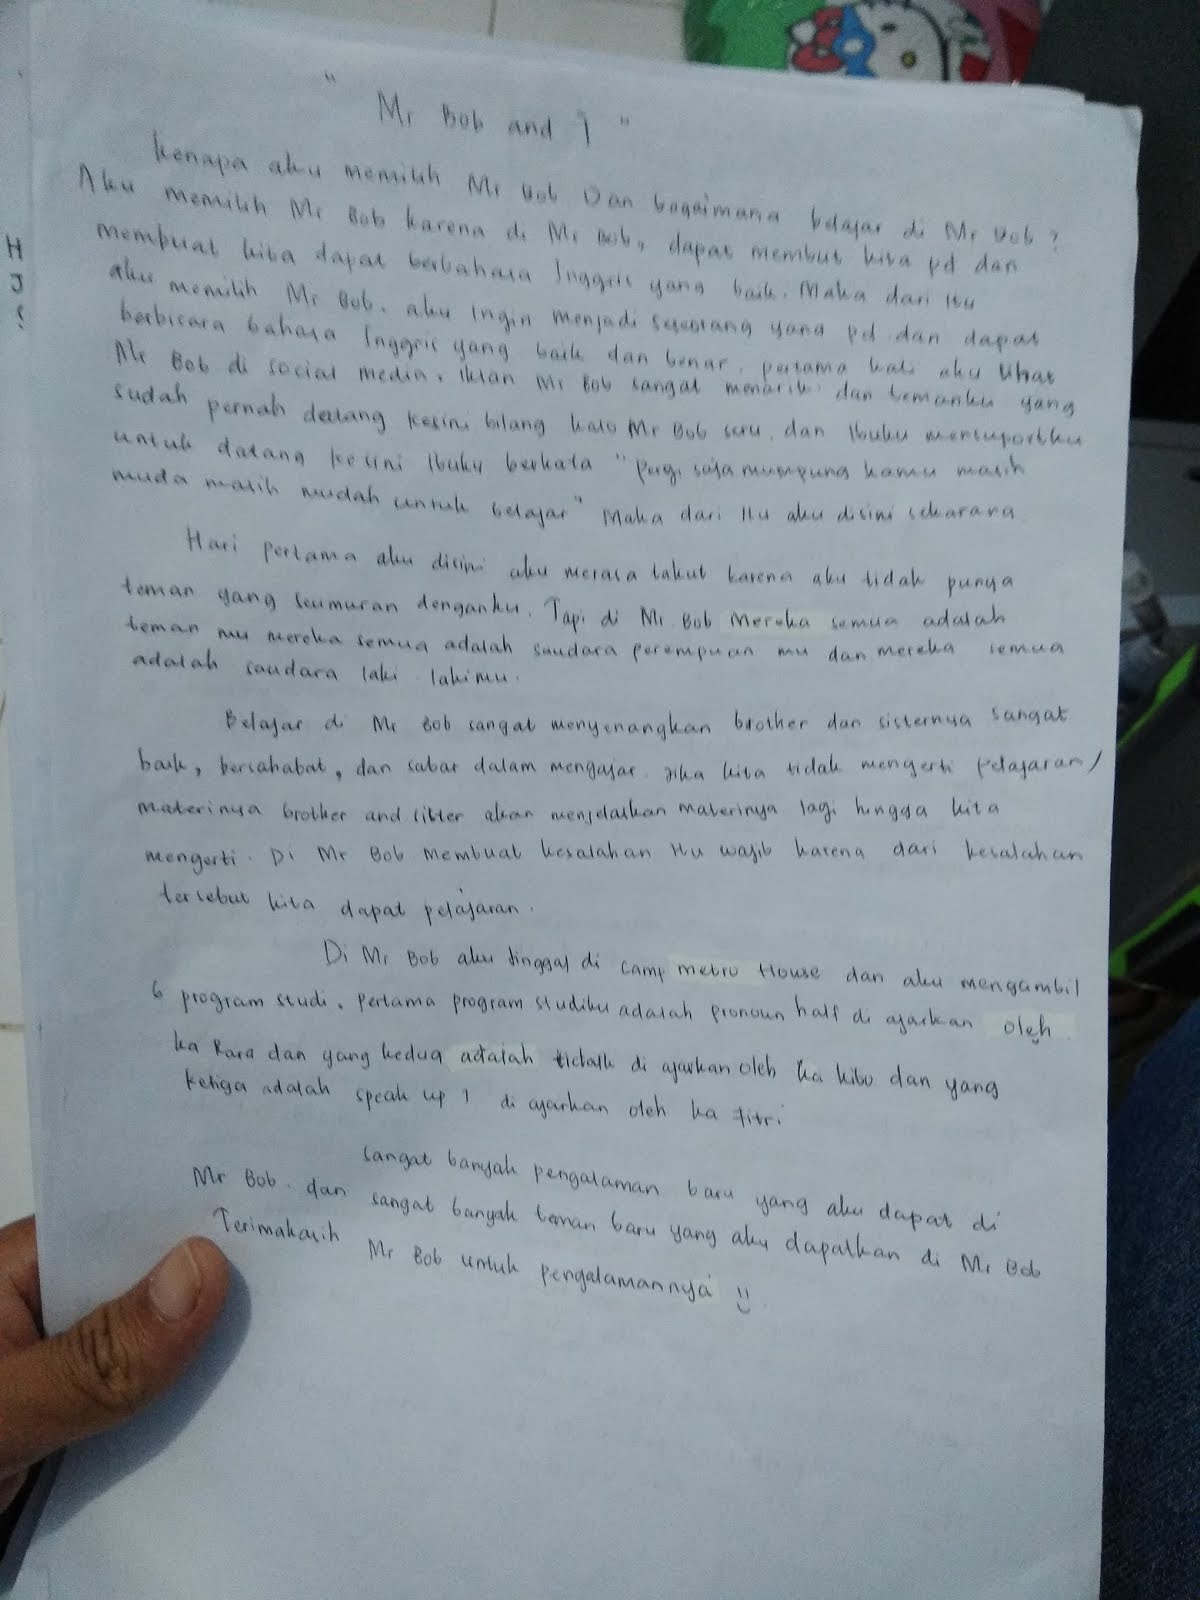 " Mr Bob and I "
kenapa aku memilih Mr Bob Dan bagaimana belajar di Mr Bob ?
Aku memilih Mr Bob karena di Mr Bob, dapat membut kita pd dan
membuat kita dapat berbahasa Inggris yang baik. Maka dari itu
aku memilih Mr Bob. aku Ingin menjadi seseorang yang pd dan dapat
berbicara bahasa Inggris yang baik dan benar. pertama kali aku lihat
Mr Bob di social media. iklan Mr Bob sangat menarik dan temanku yang
sudah pernah datang kesini bilang kalo Mr Bob seru. dan Ibuku mensuportku
untuk datang kesini Ibuku berkata " Pergi saja mumpung kamu masih
muda masih mudah untuk belajar " Maka dari itu aku disini sekarang
Hari pertama aku disini aku merasa takut karena aku tidak punya
teman yang seumuran denganku. Tapi di Mr. Bob Mereka semua adalah
teman mu mereka semua adalah saudara perempuan mu dan mereka semua
adalah saudara laki lakimu.
Belajar di Mr Bob sangat menyenangkan brother dan sisternya sangat
baik, bersahabat, dan sabar dalam mengajar. jika kita tidak mengerti pelajaran/
materinya brother and sister akan menjelaskan materinya lagi hingga kita
mengerti. Di Mr Bob membuat kesalahan itu wajib karena dari kesalahan
tersebut kita dapat pelajaran.
Di Mr Bob aku tinggal di camp metro House dan aku mengambil
6 program studi. pertama program studiku adalah pronoun half di ajarkan oleh
ka Rara dan yang kedua adalah tictalk di ajarkan oleh ka kibo dan yang
ketiga adalah speak up 1 di ajarkan oleh ka fitri
sangat banyak pengalaman baru yang aku dapat di
Mr Bob. dan sangat banyak teman baru yang aku dapatkan di Mr Bob
Terimakasih Mr Bob untuk pengalamannya
H
J